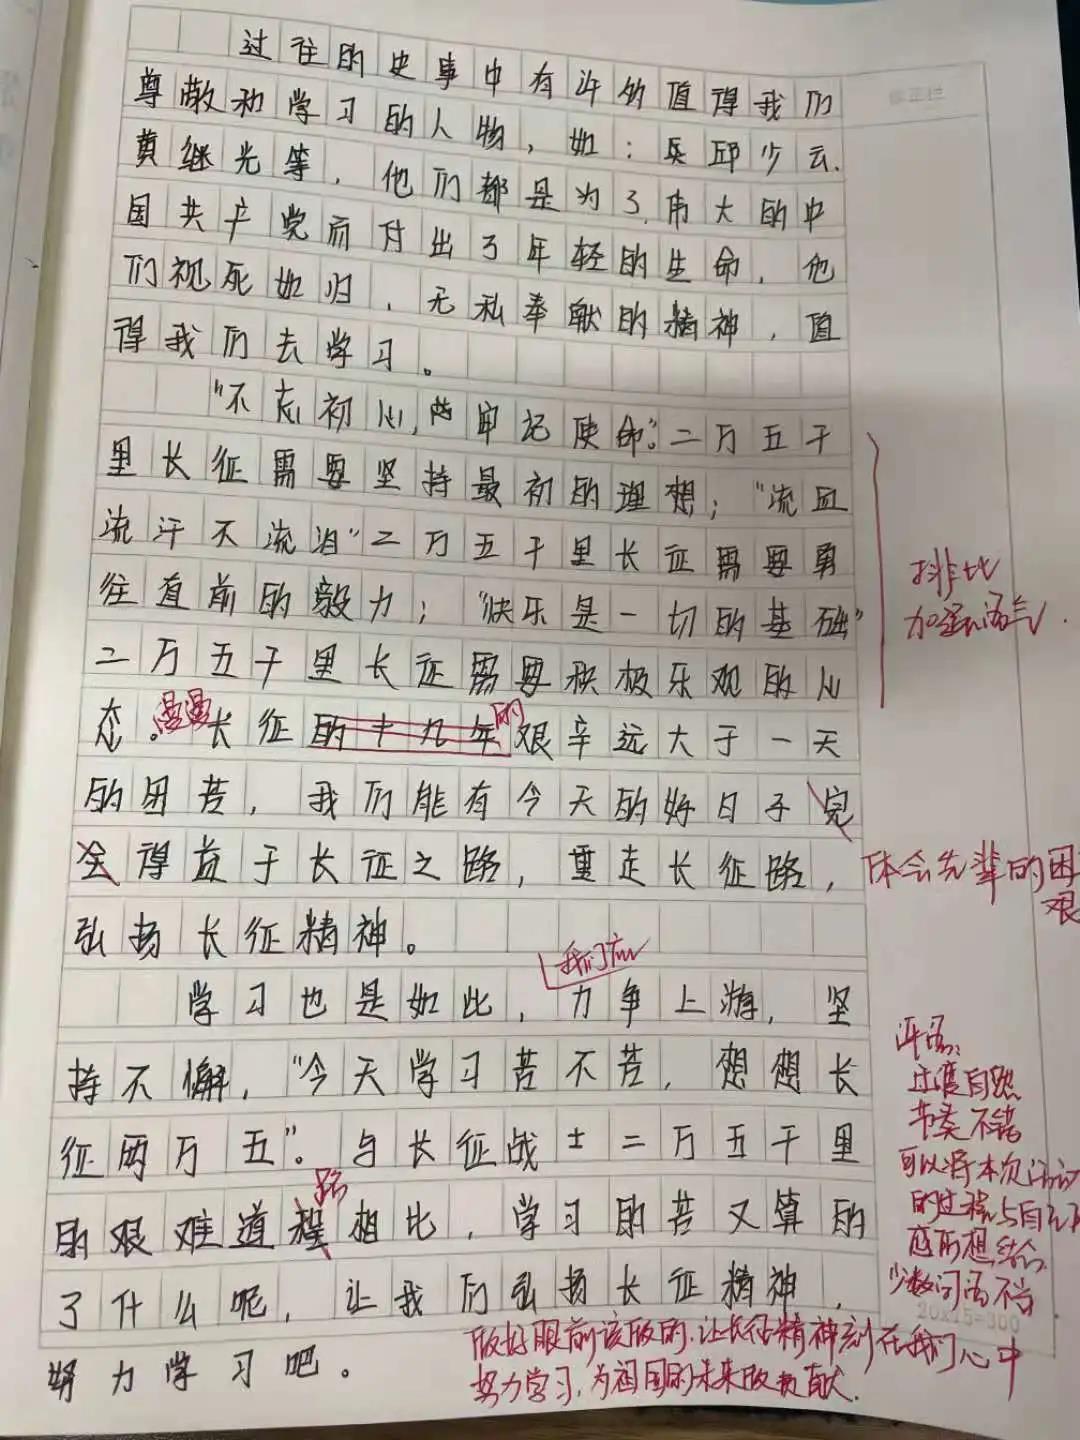 过往的史事中有许多值得我们
修正栏
尊敬和学习的人物，如：兵邱少云.
黄继光等，他们都是为了伟大的中
国共产党而付出了年轻的生命，他
们视死如归，无私奉献的精神，值
得我们去学习。
"不忘初心,牢记使命"。二万五千
里长征需要坚持最初的理想；"流血
流汗不流泪"二万五千里长征需要勇
往直前的毅力；"快乐是一切的基础"
排比
加强语气.
二万五千里长征需要积极乐观的心
态。漫漫长征的十九年的艰辛远大于一天
的困苦，我们能有今天的好日子完
全得益于长征之路，重走长征路，
体会先辈的困
艰
弘扬长征精神。
我们应
学习也是如此，力争上游，坚
持不懈，"今天学习苦不苦，想想长
征两万五"。与长征战士二万五千里
路
的艰难道程相比，学习的苦又算的
了什么呢，让我们弘扬长征精神，
努力学习吧。
评语：
过渡自然
节奏不错
可以将本次活动
的过程与自己
感所想结合.
少数词语不当
20x15=300
做好眼前该做的.让长征精神刻在我们心中
努力学习,为祖国的未来做贡献.